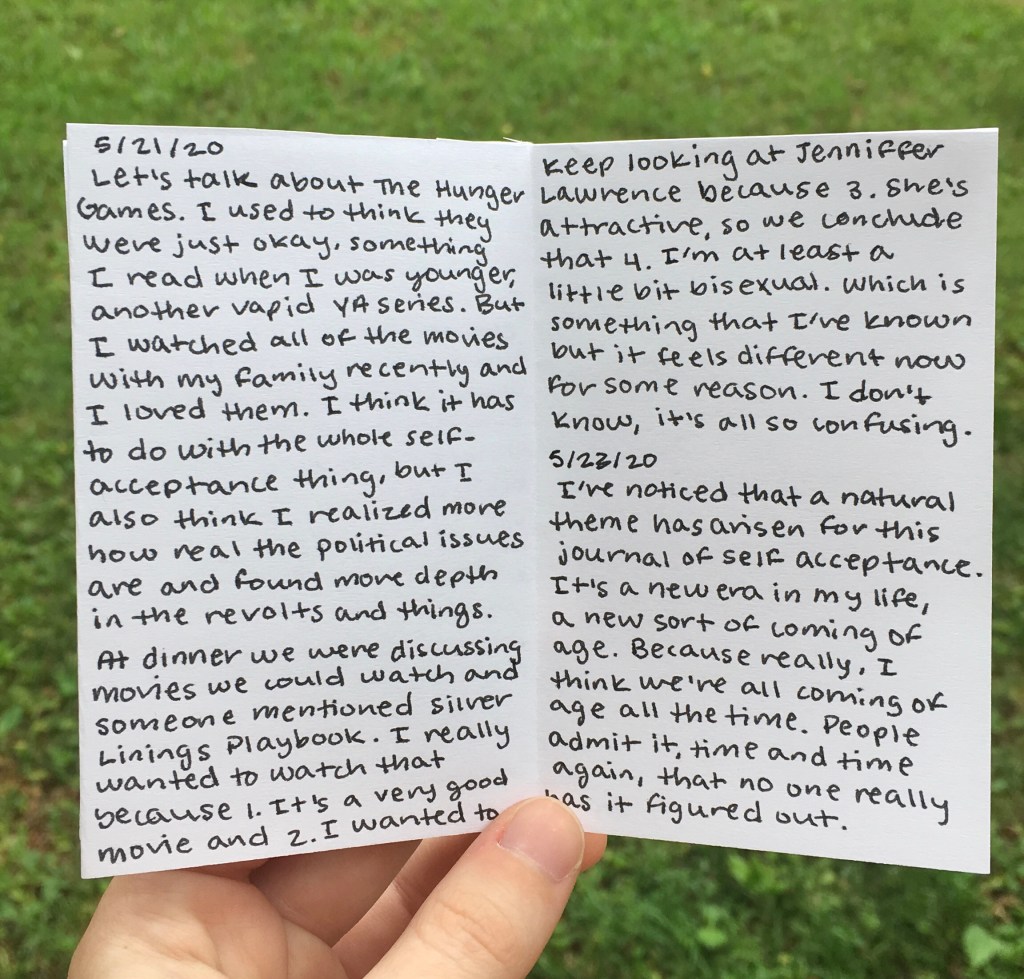 5/21/20
Let's talk about The Hunger
Games. I used to think they
were just okay, something
I read when I was younger,
another vapid YA series. But
I watched all of the movies
with my family recently and
I loved them. I think it has
to do with the whole self-
acceptance thing, but I
also think I realized more
how real the political issues
are and found more depth
in the revolts and things.
At dinner we were discussing
movies we could watch and
someone mentioned Silver
Linings Playbook. I really
wanted to watch that
because 1. It's a very good
movie and 2. I wanted to
keep looking at Jenniffer
Lawrence because 3. She's
attractive, so we conclude
that 4. I'm at least a
little bit bisexual. Which is
something that I've known
but it feels different now
for some reason. I don't
know, it's all so confusing.
5/23/20
I've noticed that a natural
theme has arisen for this
journal of self acceptance.
It's a new era in my life,
a new sort of coming of
age. Because really, I
think we're all coming of
age all the time. People
admit it, time and time
again, that no one really
has it figured out.